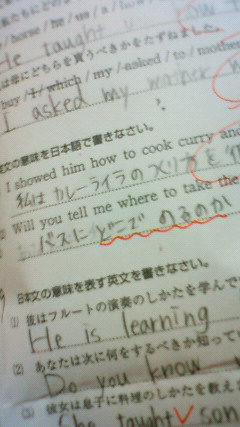 私たちにどの
/ horse / he / us / a /
He taught
は母にどちらを買うべきかをたずねました。
buy / I / which / my / asked / to / mother
I asked my mother
文の意味を日本語で書きなさい。
I showed him how to cook curry and
私は カレーライラの つくり方を
Will you tell me where to take the
バスに どこで のるのか
日本文の意味を表す英文を書きなさい。
(1) 彼はフルートの演奏のしかたを学んで
He is learning
(2) あなたは次に何をするべきか知って
Do you know
(3) 彼女は息子に料理のしかたを教え
She taught son